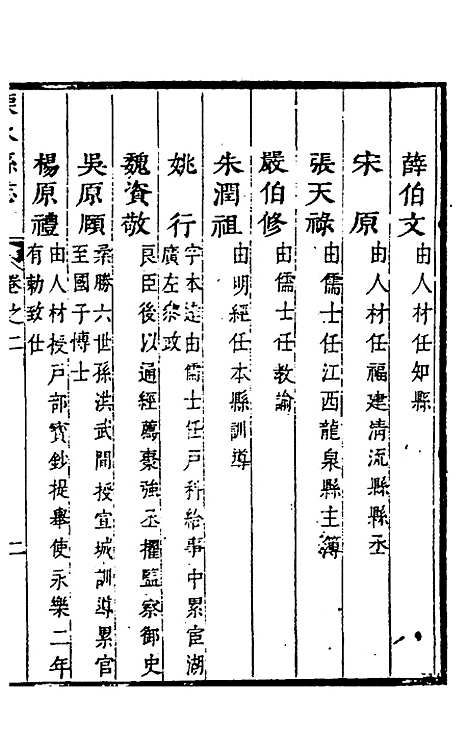 薛伯文由人材任知縣
宋原由人材任福建清流縣縣丞
張天祿由儒士任江西龍泉縣主簿
嚴伯修由儒士任教諭
朱潤祖由明經任本縣訓導
姚行字本達由儒士任戶科給事中累宦湖
廣左參政
魏資敬良臣後以通經薦棗強丞擢監察御史
吳原頤柔勝六世孫洪武間授宣城訓導累官
至國子博士
楊原禮由人材授戶部寶鈔提舉使永樂二年
有勅致仕
溧水縣志 卷之二 二